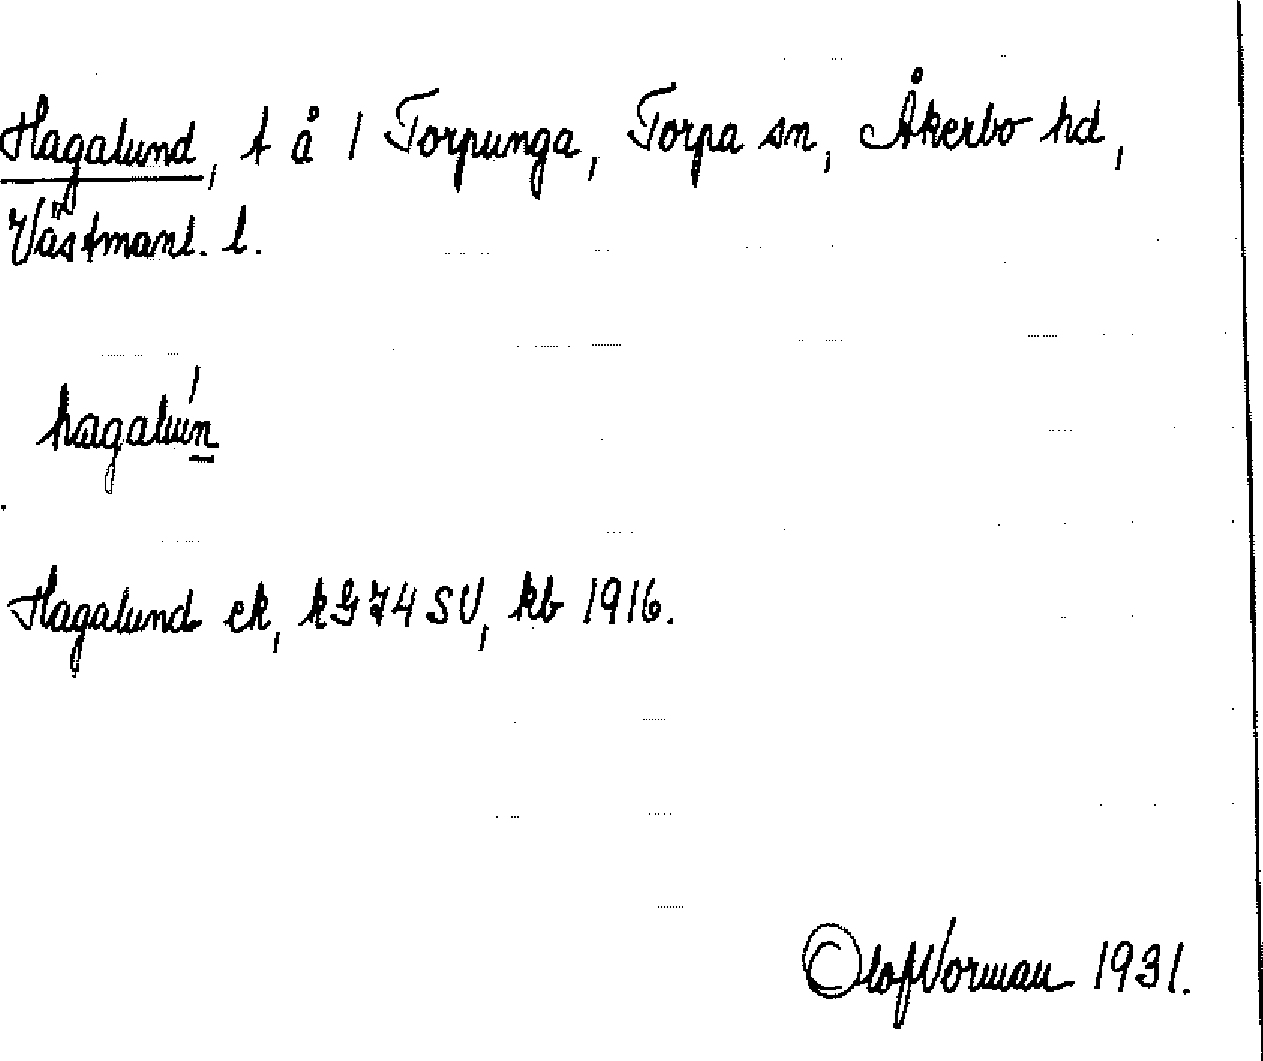 Hagalund, t å 1 Torpunga, Torpa sn, Åkerbo hd,
Västmanl. l.
hagalún
Hagalund ek, kG74SV, kb 1916.
Olof Vorman 1931.